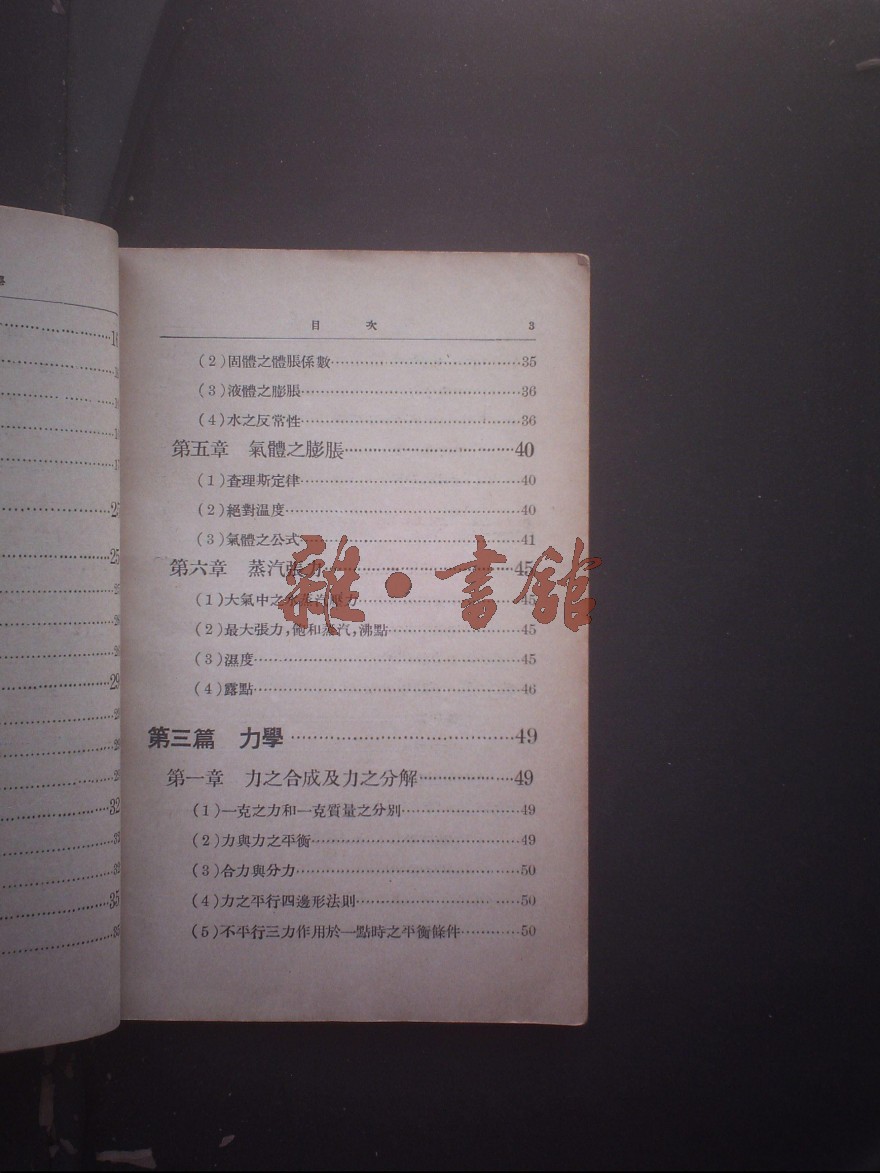 目　次　3
(2)固體之體脹係數……35
(3)液體之膨脹……36
(4)水之反常性……36
第五章　氣體之膨脹……40
(1)查理斯定律……40
(2)絕對温度……40
(3)氣體之公式……41
第六章　蒸汽張力……45
(1)大氣中之水蒸汽壓力……45
(2)最大張力，飽和蒸汽，沸點……45
(3)濕度……45
(4)露點……46
第三篇　力學……49
第一章　力之合成及力之分解……49
(1)一克之力和一克質量之分別……49
(2)力與力之平衡……49
(3)合力與分力……50
(4)力之平行四邊形法則……50
(5)不平行三力作用於一點時之平衡條件……50
雜·書館
25
29
32
35